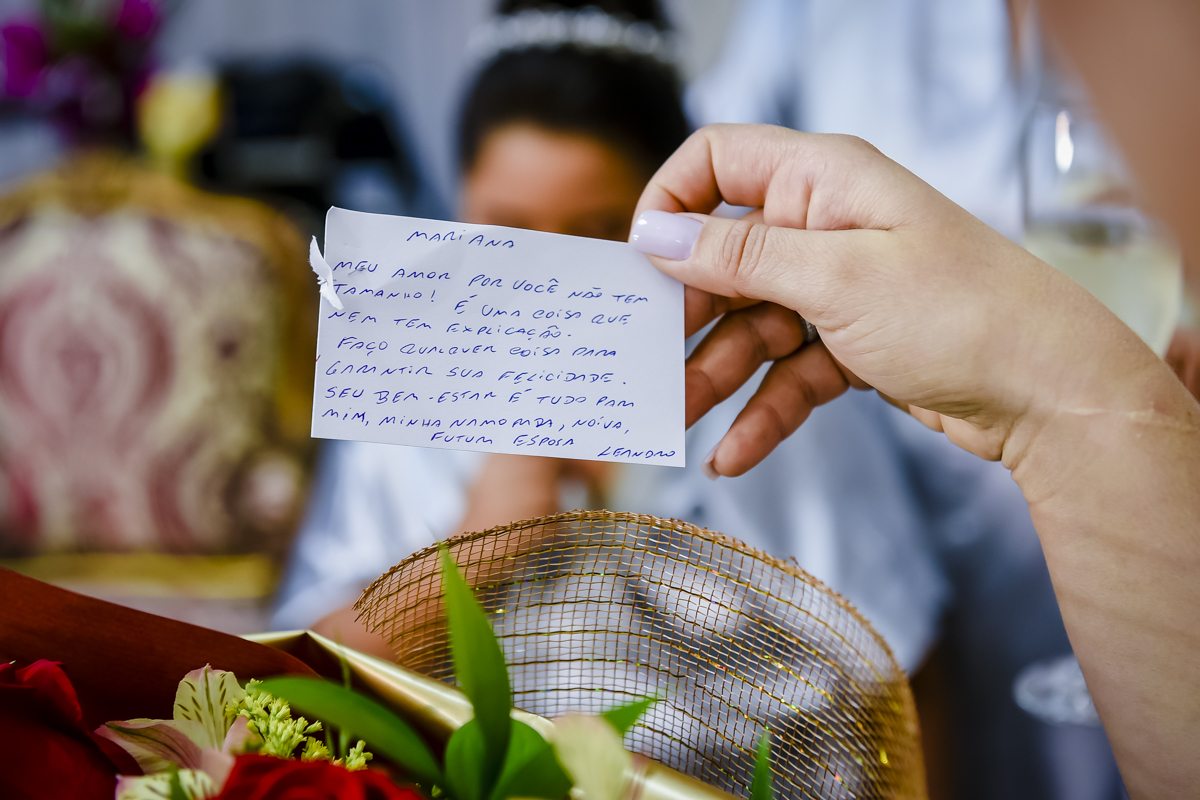 MARIANA
MEU AMOR POR VOCÊ NÃO TEM
TAMANHO! É UMA COISA QUE
NEM TEM EXPLICAÇÃO.
FAÇO QUALQUER COISA PARA
GARANTIR SUA FELICIDADE.
SEU BEM-ESTAR É TUDO PARA
MIM, MINHA NAMORADA, NOIVA,
FUTURA ESPOSA
LEANDRO